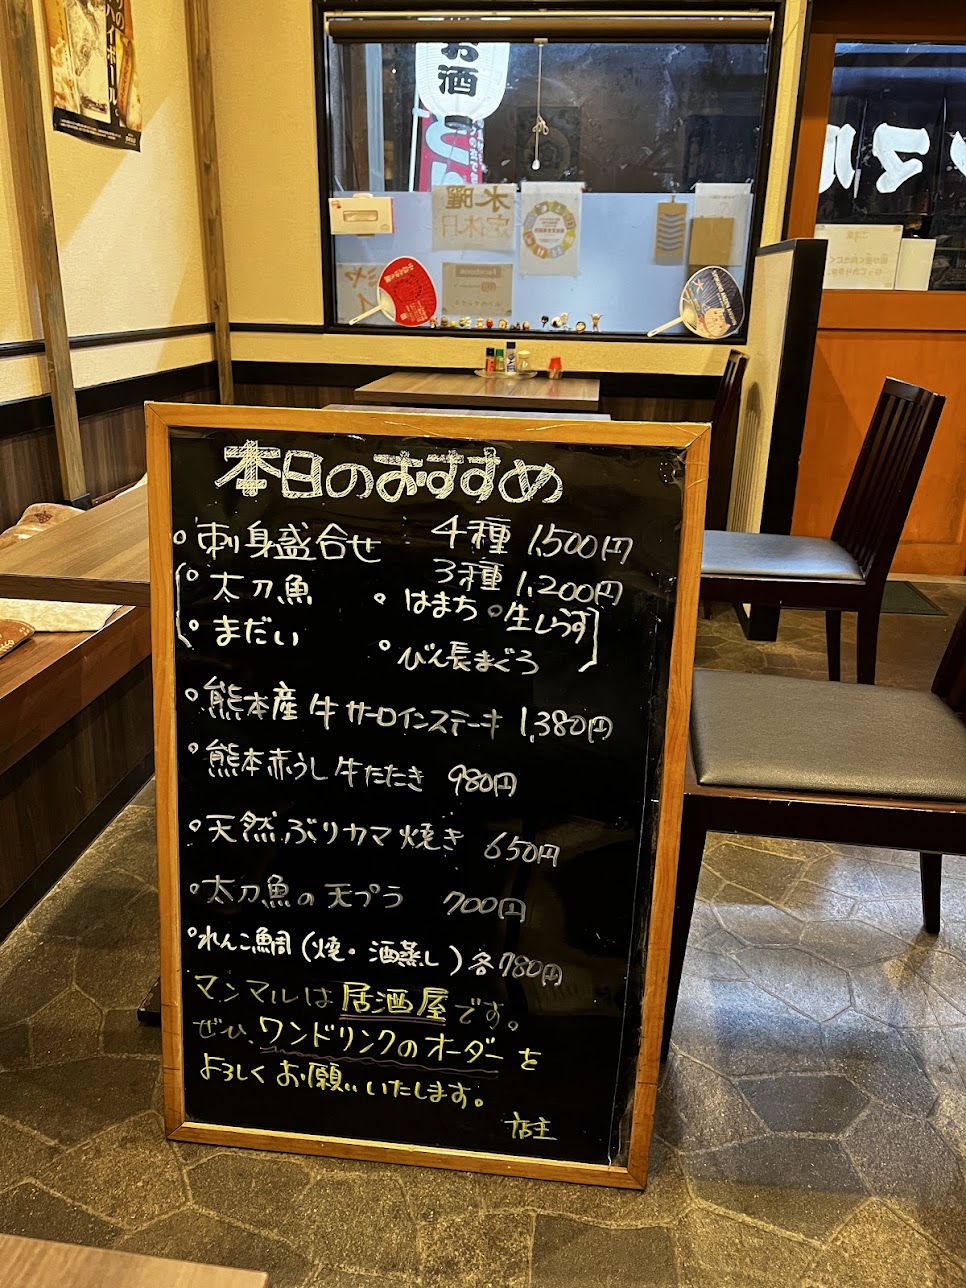 のハイボール
お酒
水曜
定休日
Facebook
マル
本日のおすすめ
刺身盛合せ 4種 1,500円
3種 1,200円
太刀魚 はまち 生しらす
まだい びん長まぐろ
熊本産牛サーロインステーキ 1,380円
熊本赤うし牛たたき 980円
天然ぶりカマ焼き 650円
太刀魚の天プラ 700円
れんこ鯛(焼・酒蒸し)各780円
マンマルは居酒屋です。
ぜひ、ワンドリンクのオーダーを
よろしくお願いいたします。
店主